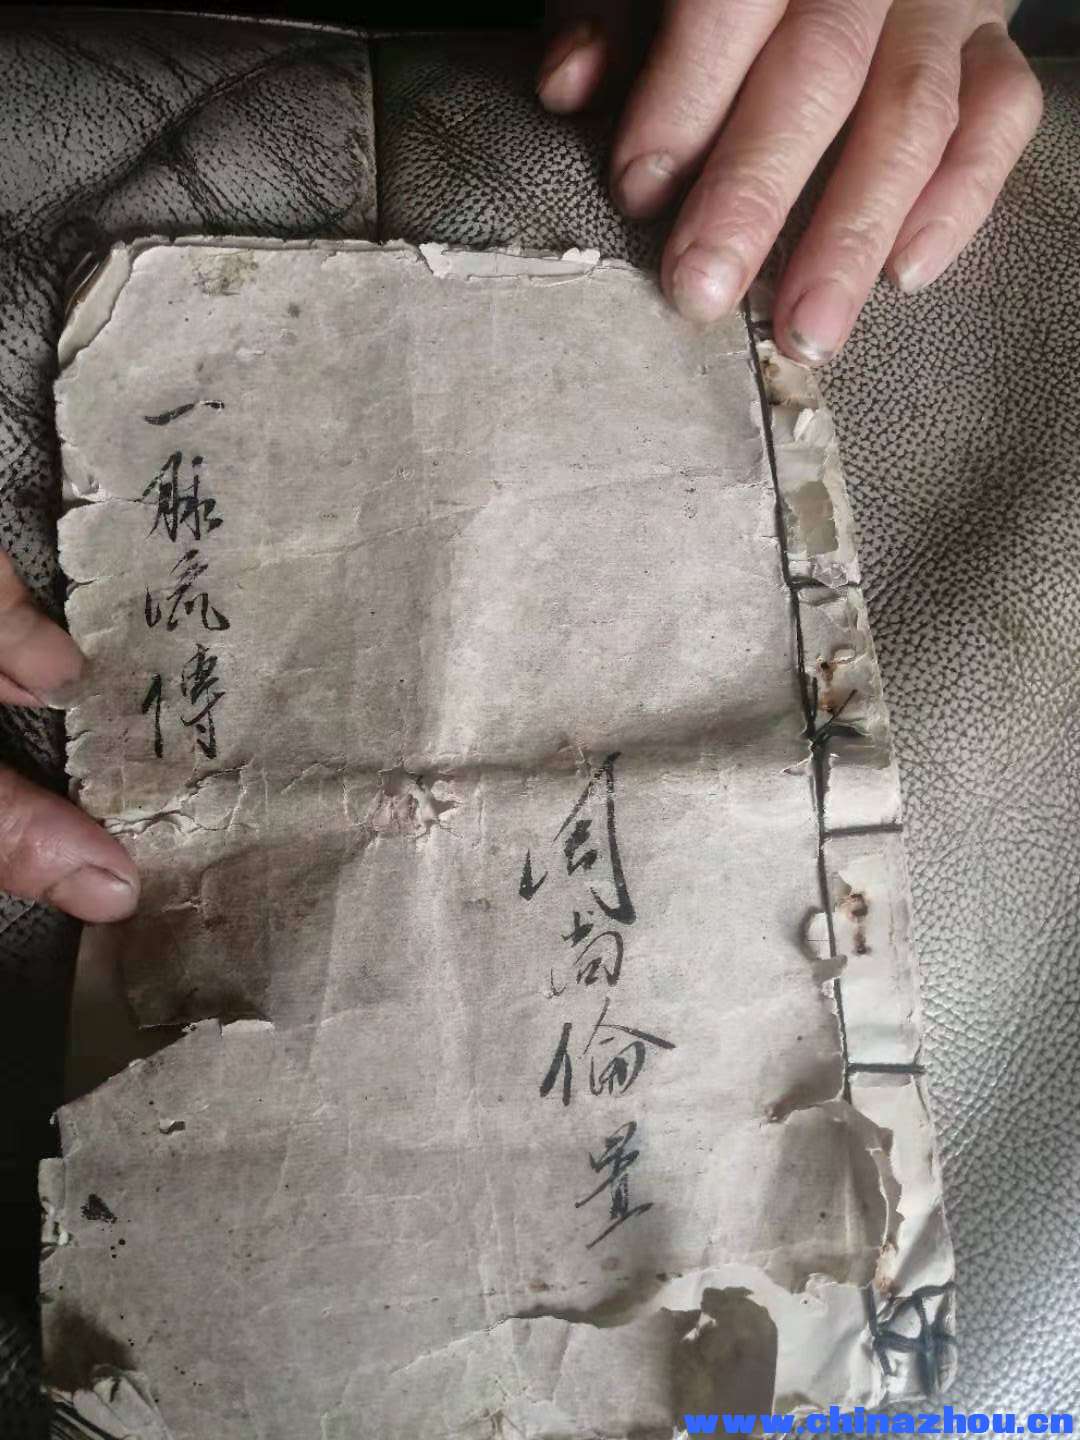 一脉流傳
周尚倫置
www.chinazhou.cn